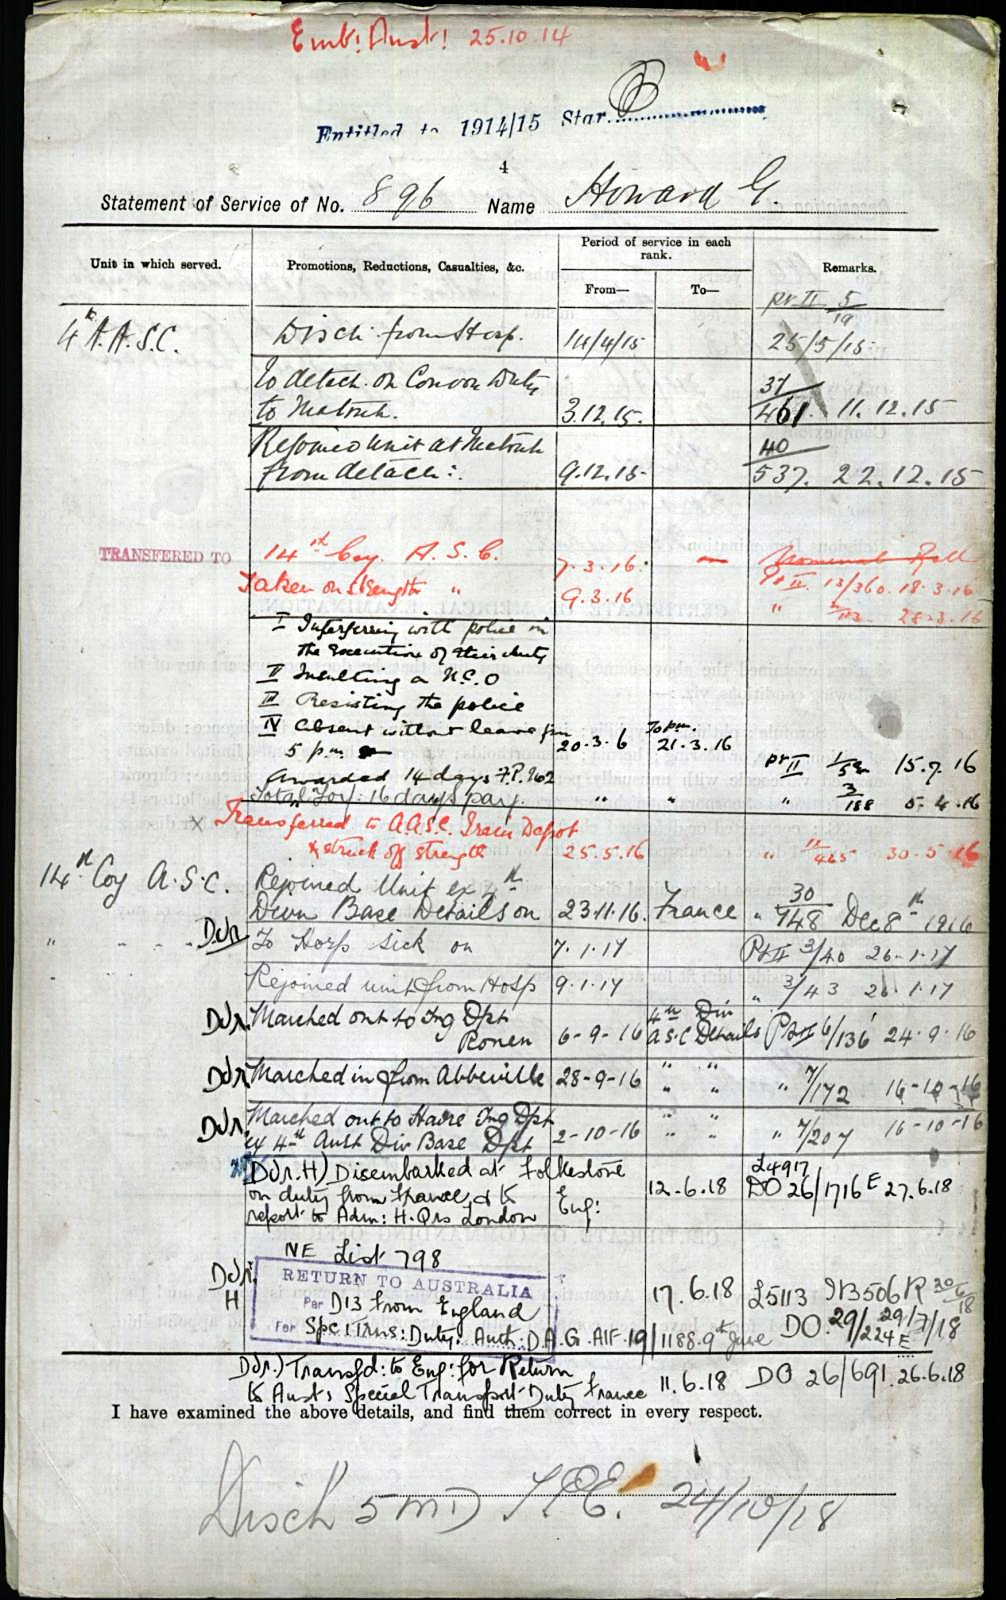 Emb! Aust! 25.10.14
Entitled to 1914/15 Star
4
Statement of Service of No. 896 Name Howard G.
Unit in which served.
Promotions, Reductions, Casualties, &c.
Period of service in each rank.
From—
To—
Remarks.
Pt II 5/19
4th A.A.S.C. Disch from Hosp. 14/4/15 25/5/15
To detach. on Convoy Duty 37
to Matruh. 3.12.15. 461 11.12.15
Rejoined Unit at Matruh 40
from detach: 9.12.15 537. 22.12.15
TRANSFERED TO 14th Coy. A.S.C. 7.3.16. — Nominal Roll
Taken on strength " 9.3.16 Pt II 13/360. 18.3.16
" 28.3.16
I Interferring with police in
the execution of their duty
II Insulting a N.C.O
III Resisting the police
IV absent without leave fm
5 pm 20.3.6 21.3.16 pt II 15.7.16
Awarded 14 days F.P. No2
Total Forf: 16 days pay. " " " 3/188 5.4.16
X Transferred to A.A.S.C. Train Depot
& struck off strength 25.5.16 " 11/465 30.5.16
14th Coy A.S.C. Rejoined Unit ex th 30
Divn Base Details on 23.11.16. France " 948 Dec 8th 1916
" " " " Ddr To Hosp sick on 7.1.17 Pt II 3/40 26.1.17
Rejoined unit from Hosp 9.1.17 " 3/43 26.1.17
Ddr. Marched out to Tng Dpt 4th Div
Rouen 6-9-16 A.S.C Details Pt II 6/136 24.9.16
Ddr Marched in from Abbeville 28-9-16 " " " 7/172 16-10-16
Ddr. Marched out to Havre Tng Dpt
ex 4th Aust Div Base Dpt 2-10-16 " " " 7/207 16-10-16
Ddr.H) Disembarked at Folkestone £4917
on duty from France & to Eng: 12.6.18 DO 26/1716 E 27.6.18
report to Adm: H.Qrs London
NE List 798
Ddr. H RETURN TO AUSTRALIA
Per D13 from England 17.6.18 £5113 N3506 R 20/6/18
For Spec Trns: Duty: Auth: D.A.G. AIF 19/1188.9th June DO. 29/224 E 29/7/18
Ddr.) Transfd: to Eng: for Return
to Aust: Special Transport Duty France 11.6.18 DO 26/691. 26.6.18
I have examined the above details, and find them correct in every respect.
Disch 5 MD T.P.E. 24/10/18